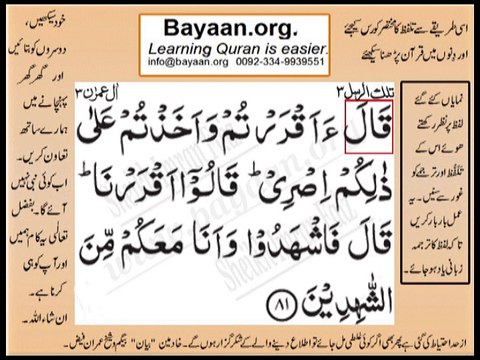 Bayaan.org.
Learning Quran is easier.
info@bayaan.org 0092-334-9939551
خود سیکھیں،
دوسروں کو بتائیں
اور گھر گھر
پہنچانے میں
ہمارے ساتھ
تعاون کریں۔
اب کوئی نبی نہیں
آئے گا۔ بفضل
تعالی یہ کام ہمیں
اور آپ کو ہی
کرنا ہے۔
ان شاءاللہ۔
اسی طریقے سے تلفظ کا مختصر کورس کیجئے
اور دنوں میں قرآن پڑھنا سیکھئے
تلك الرسل ۳
ال عمرٰن ۳
قَالَ ءَاَقۡرَرۡتُمۡ وَاَخَذۡتُمۡ عَلٰى
ذٰلِكُمۡ اِصۡرِىۡ‌ؕ قَالُوۡۤا اَقۡرَرۡنَا‌ؕ
قَالَ فَاشۡهَدُوۡا وَاَنَا مَعَكُمۡ مِّنَ
الشّٰهِدِيۡنَ ۸۱
نمایاں کئے گئے
لفظ پر نظر رکھتے
ھوئے اس کے
تلفظ اور ترجمے کو
غور سے سنیں۔ یہ
عمل بار بار کریں
تاکہ لفظ کا ترجمہ
زبانی یاد ہو جائے۔
از حد احتیاط کی گئی ہے پھر بھی اگر کوئی غلطی مل جائے تو اطلاع دینے والے کے شکر گزار ہوں گے۔ خادمین "بیان" بیگم و شیخ عمران فیض۔